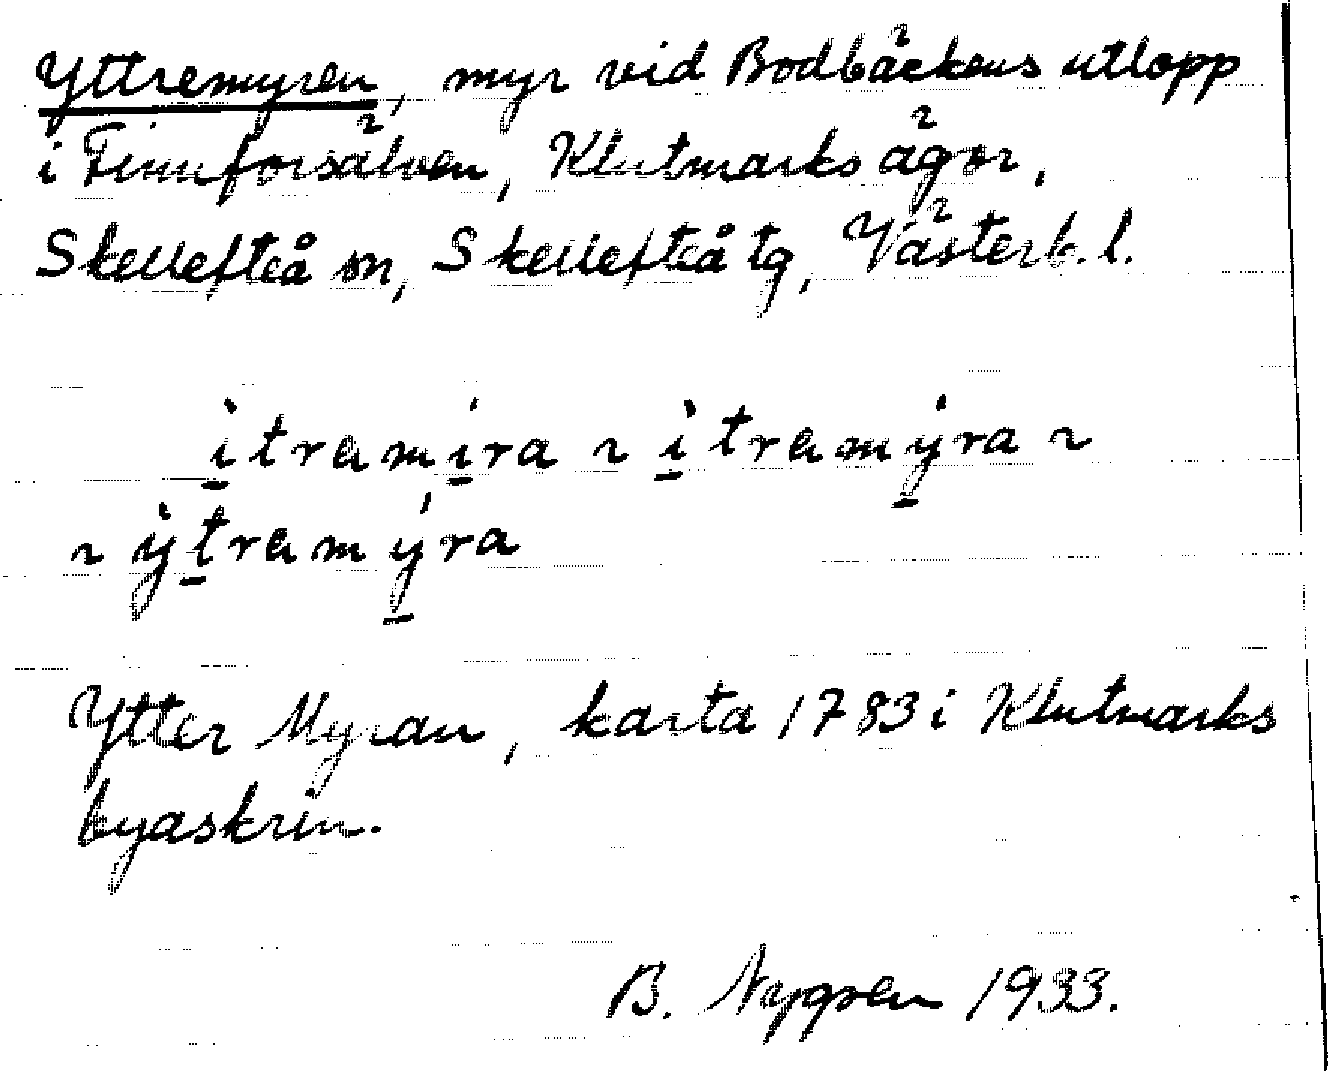 Yttremyren, myr vid Bodbäckens utlopp
i Finnforsälven, Klutmarks ägor,
Skellefteå sn, Skellefteå tg, Västerb. l.
ì̠tram í̠ra ~ ì̠tramý̠ra ~
~ ỳt̠ramý̠ra
Ytter Myran, karta 1783 i Klutmarks
byaskrin.
B. Nygren 1933.